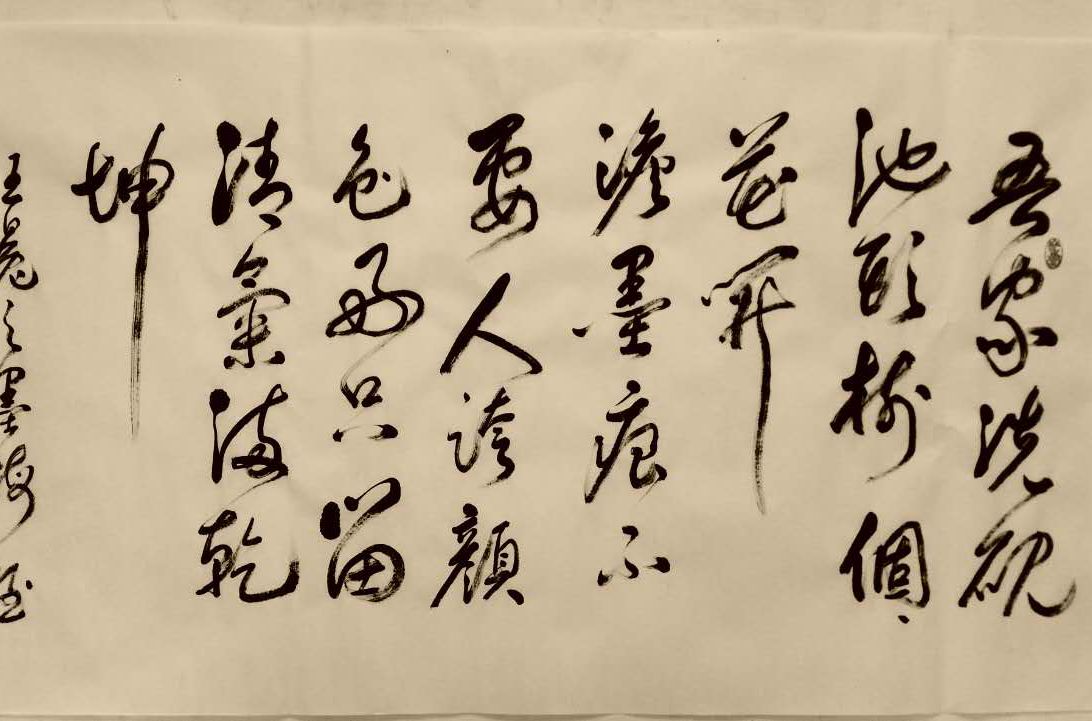 吾家洗硯
池頭樹個々
花開
澹墨痕不
要人誇顏
色好只留
清氣滿乾
坤
王冕之墨梅